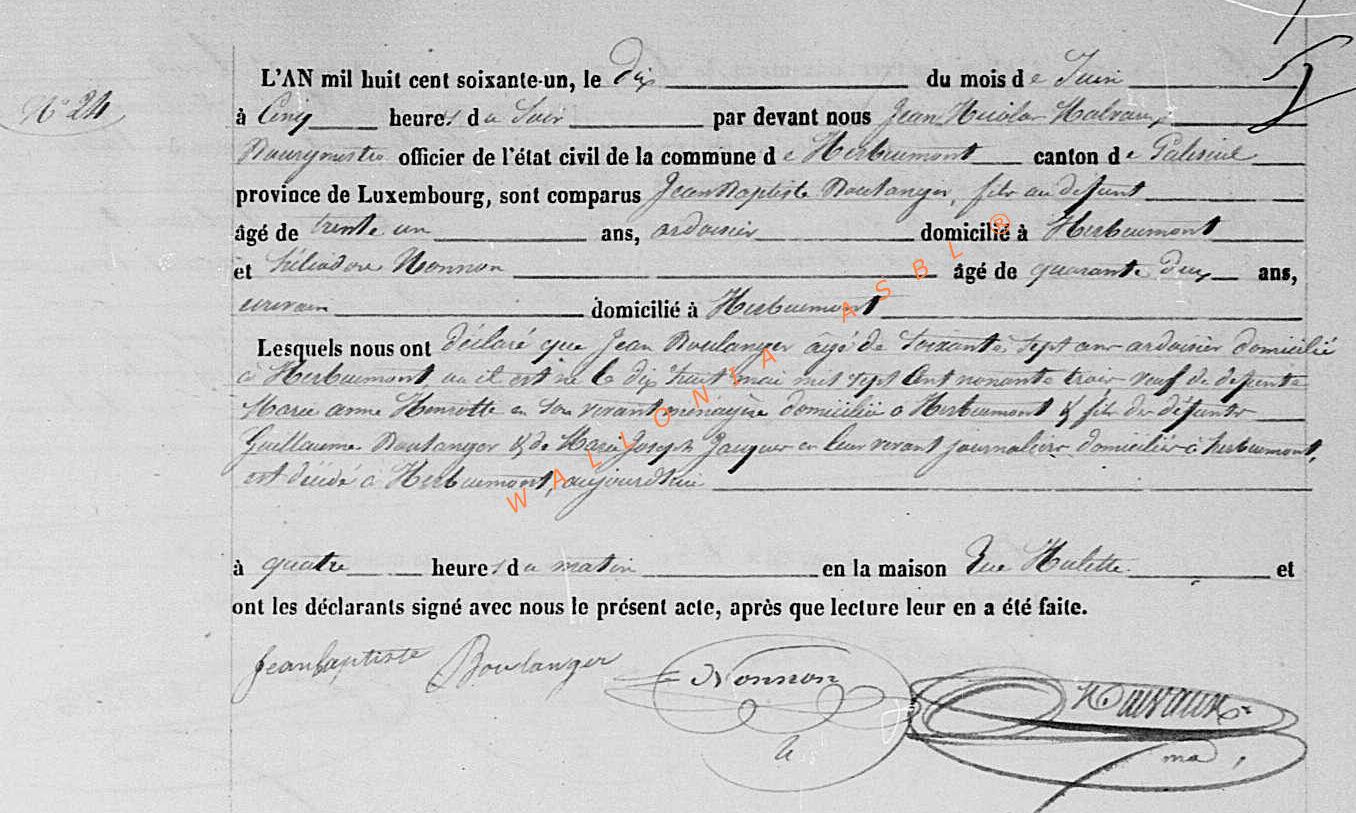 N° 24
L'AN mil huit cent soixante-un, le Dix du mois de Juin
à Cinq heures du Soir par devant nous Jean Nicolas Halvaux
Bourgmestre officier de l'état civil de la commune de Herbeumont canton de Paliseul
province de Luxembourg, sont comparus Jean Baptiste Boulanger, fils au défunt
âgé de trente un ans, ardoisier domicilié à Herbeumont
et Héliodore Nonnon âgé de quarante deux ans,
écrivain domicilié à Herbeumont
Lesquels nous ont déclaré que Jean Boulanger agé de Soixante Sept ans ardoisier domicilié
à Herbeumont ou il est né le dix huit mai mil sept Cent nonante trois veuf de défunte
Marie anne Henrotte en Son vivant ménagère domiciliée à Herbeumont & fils des défunts
Guillaume Boulanger & de Marie Joseph Jacques en leur vivant journaliers domiciliés à herbeumont,
est décédé à Herbeumont, aujourd'hui
à quatre heures du matin en la maison Rue Hulette et
ont les déclarants signé avec nous le présent acte, après que lecture leur en a été faite.
Jean baptiste Boulanger Nonnon Halvaux
WALLONIA ASBL ®